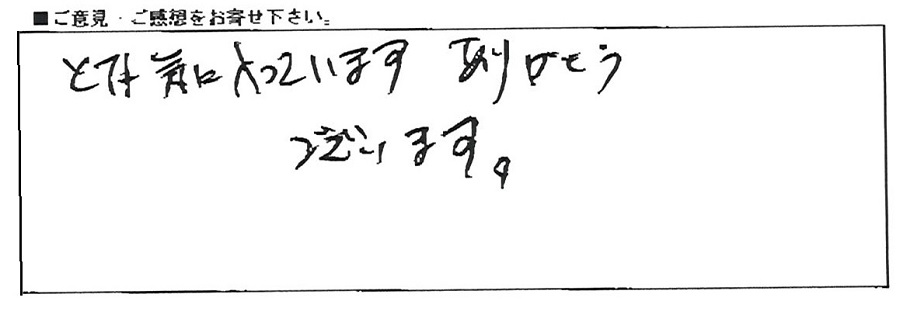 ■ご意見・ご感想をお寄せ下さい。
とても気に入っています ありがとう
ございます。